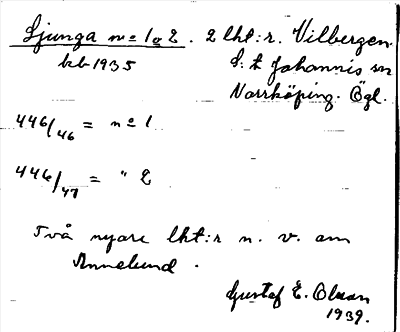 Ljunga no 1o2. 2 lht:r. Vilbergen
kb 1935
S:t Johannis sn
Norrköping. Ögl.
446/46 = no 1
446/47 = " 2
Två nyare lht:r n. v. om
Annelund.
Gustaf E. Olsson
1939.